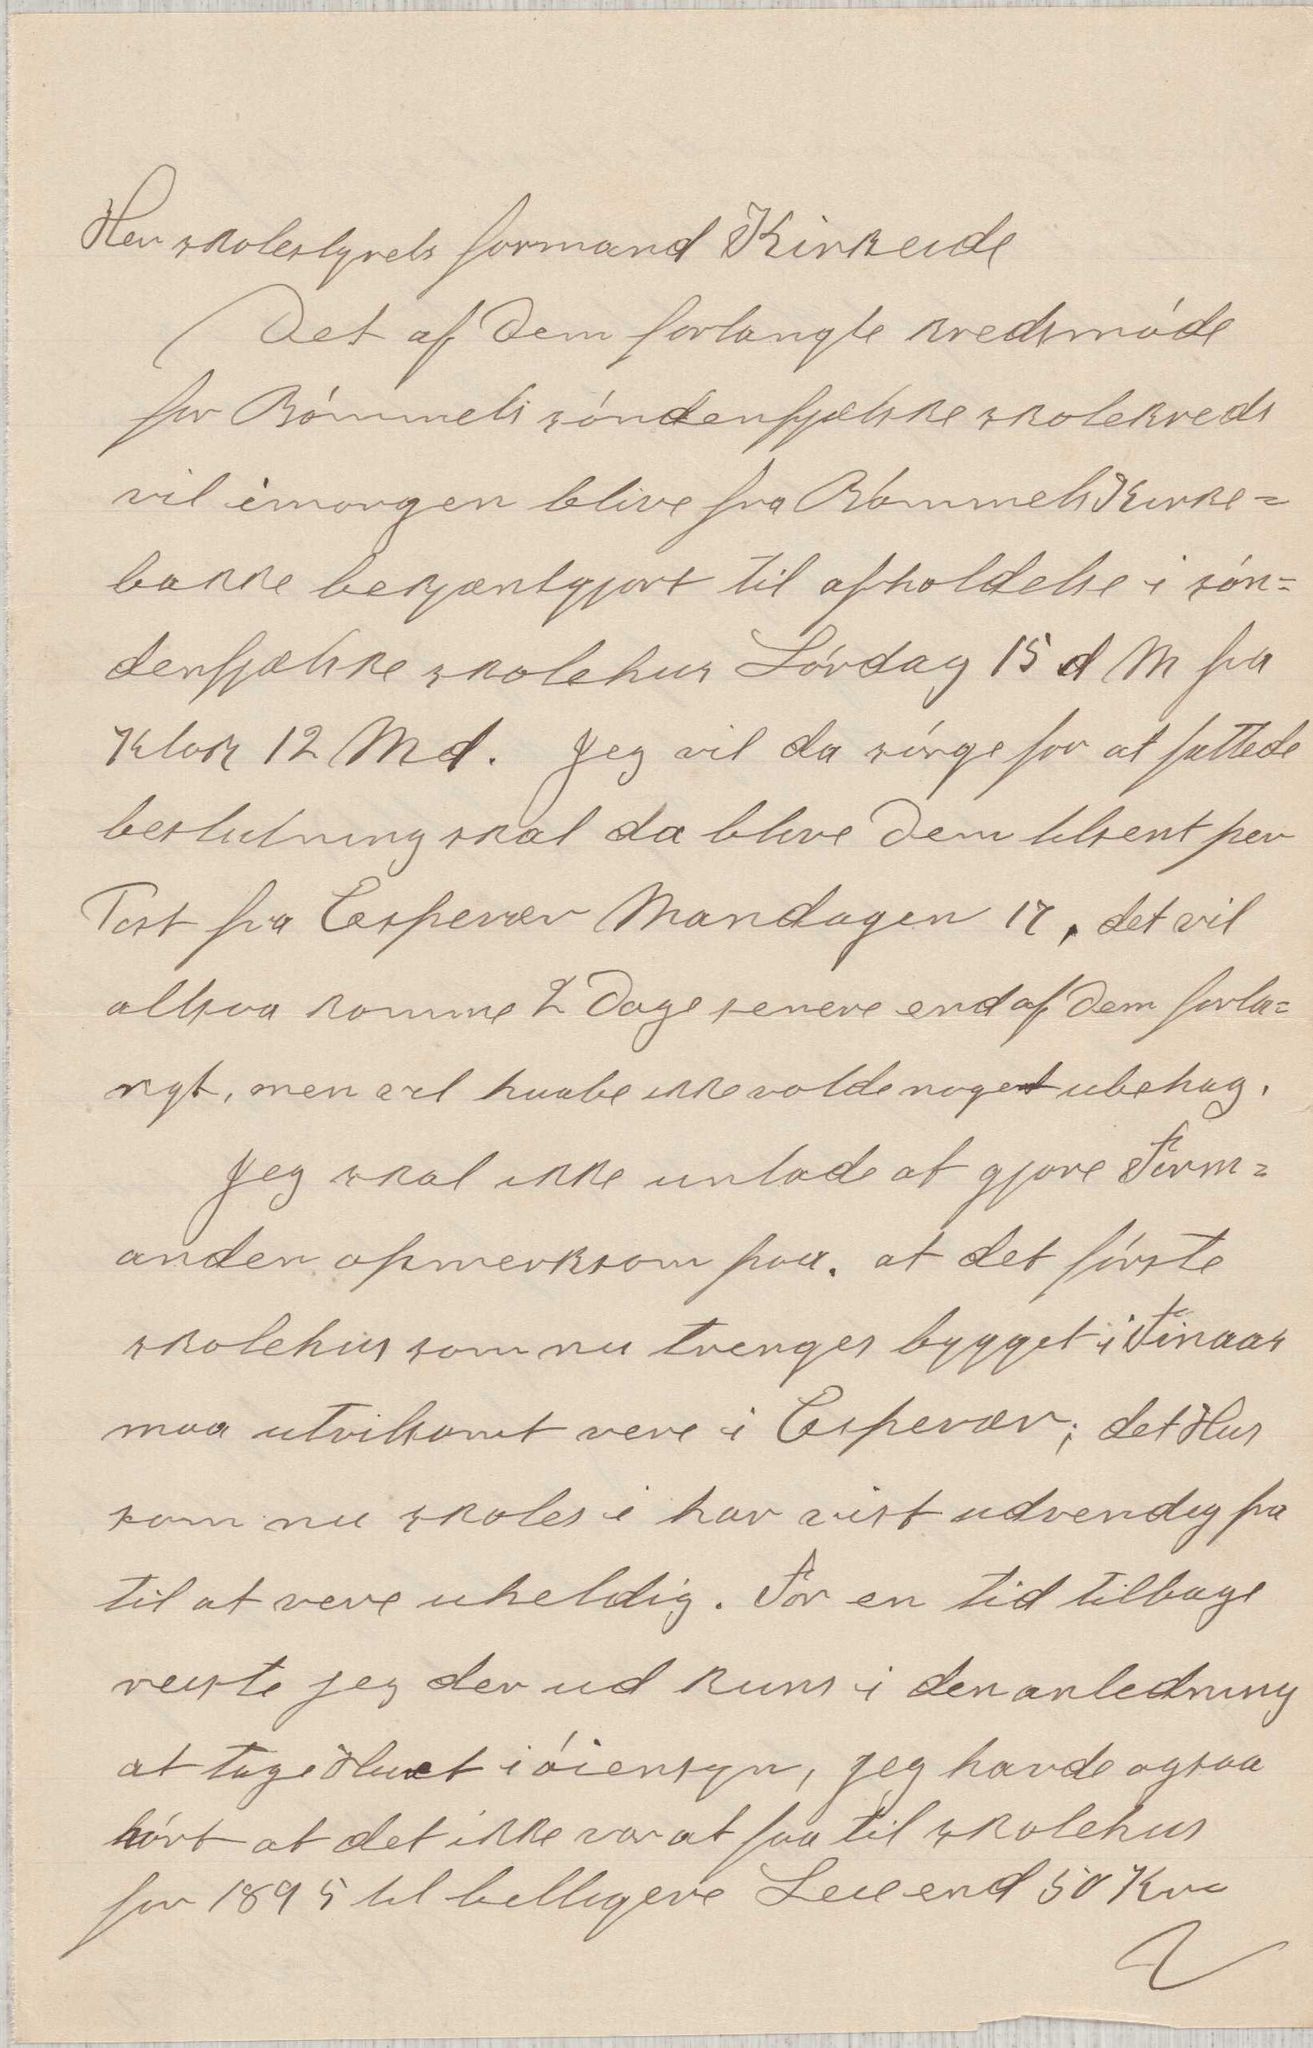 Herr skolestyrets formand Kirkeide
Det af Dem forlangte kredsmóde
for Bómmels sóndenfjælske skolekreds
vil imorgen blive fra Bómmels Kirke=
bakke bekjæntgjort til afholdelse i són=
denfjælske skolehus Lórdag 15 d M fra
Klok 12 Md. Jeg vil da sórge for at fattede
beslutning skal da blive Dem tilsent per
Post fra Espevær Mandagen 17, det vil
altsaa komme 2 Dage senere end af Dem forla=
ngt, men vil haabe ikke volde noget ubehag.
Jeg skal ikke unlade at gjøre Form=
anden opmerksom paa. at det fórste
skolehus som nu trenges bygget i Finaas
maa utvilsomt vere i Espevær; det Hus
som nu skoles i har vist udvendig fra
til at vere uheldig. For en tid tilbage
reiste jeg der ud kuns i den anledning
at tage Huset i óiensyn, jeg havde ogsaa
hórt at det ikke var at faa til skolehus
for 1895 til belligere Leie end 50 Kr